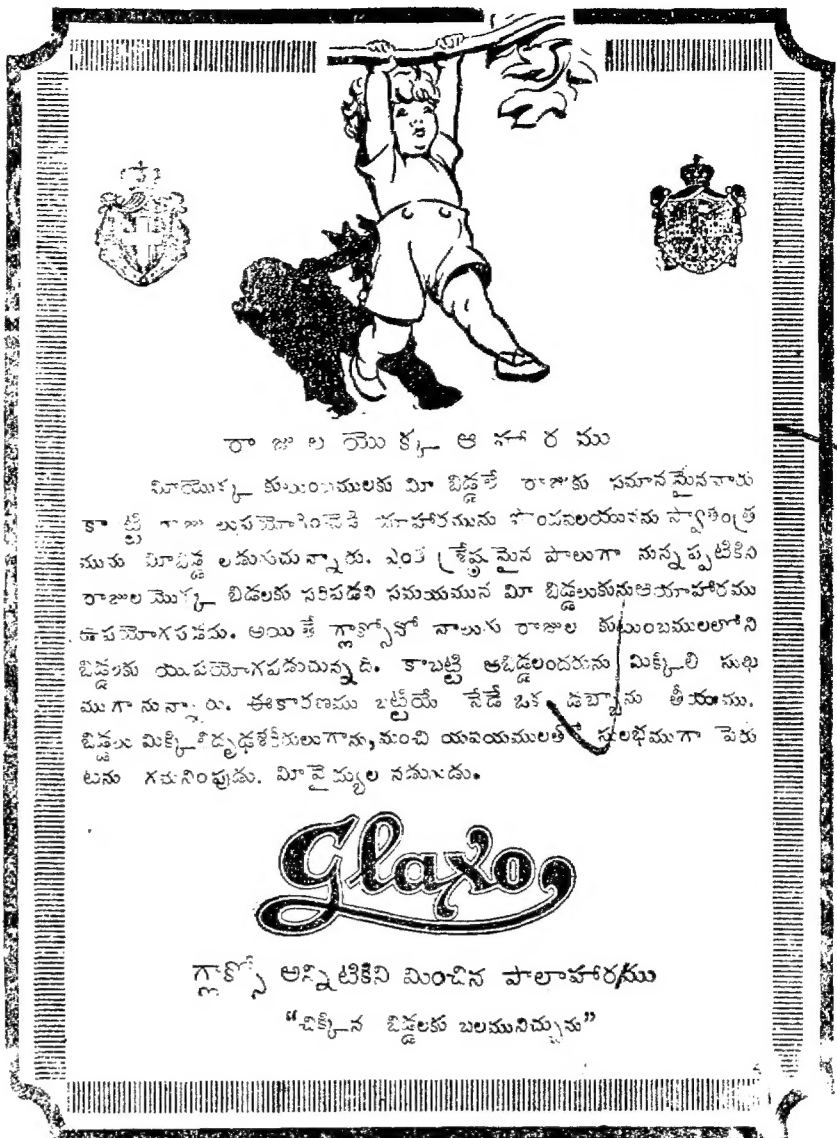 రాజుల యొక్క ఆహారము
మీయొక్క కుటుంబములకు మీ బిడ్డలే రాజుకు సమానమైనవారు
కాబట్టి రాజు లుపయోగించెడి యాహారమును పొందవలయునను స్వాతంత్ర
మును మీబిడ్డ లడుగుచున్నారు. ఎంత శ్రేష్ఠమైన పాలుగా నున్నప్పటికిని
రాజుల యొక్క బిడలకు సరిపడని సమయమున మీ బిడ్డలుకును ఆయాహారము
ఉపయోగపడదు. అయితే గ్లాక్సోనో నాలుగు రాజుల కుటుంబములలోని
బిడ్డలకు యుపయోగపడుచున్నది. కాబట్టి ఆబిడ్డలందరును మిక్కిలి సుఖ
ముగా నున్నారు. ఈకారణము బట్టియే నేడే ఒక డబ్బాను తీయుము.
బిడ్డలు మిక్కిలిదృఢశరీరులుగాను, మంచి యవయములతో సులభముగా పెరు
టను గమనింపుడు. మీవైద్యుల నడుగుడు.
Glaxo
గ్లాక్సో అన్నిటికిని మించిన పాలాహారము
“చిక్కిన బిడ్డలకు బలమునిచ్చును”